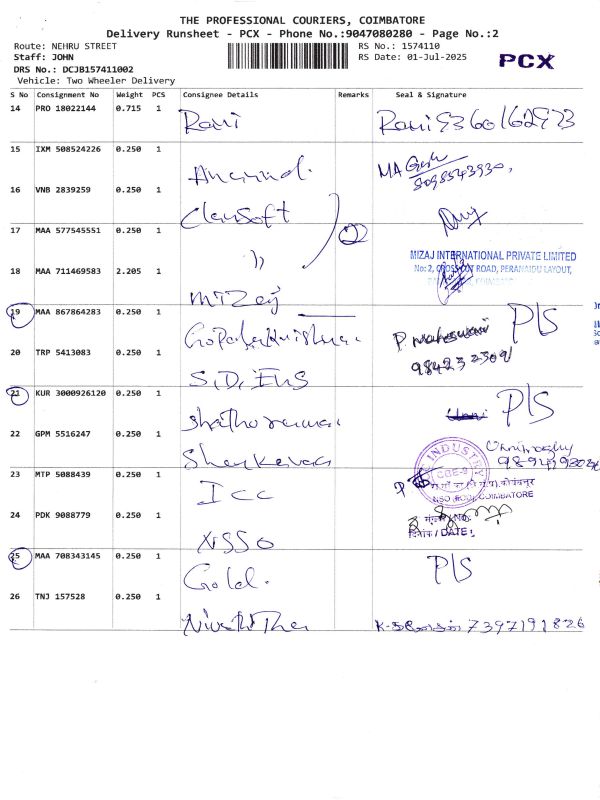 THE PROFESSIONAL COURIERS, COIMBATORE
Delivery Runsheet - PCX - Phone No.:9047080280 - Page No.:2
Route: NEHRU STREET
Staff: JOHN
DRS No.: DCJB157411002
Vehicle: Two Wheeler Delivery
RS No.: 1574110
RS Date: 01-Jul-2025
PCX
S No Consignment No Weight PCS Consignee Details Remarks Seal & Signature
14 PRO 18022144 0.715 1
Rani Rani 9360162973
15 IXM 508524226 0.250 1
Anand. MA
8098543930,
16 VNB 2839259 0.250 1
Clensoft
17 MAA 577545551 0.250 1
)) 2
MIZAJ INTERNATIONAL PRIVATE LIMITED
No: 2, CROSSCUT ROAD, PERANAIDU LAYOUT,
18 MAA 711469583 2.205 1
Mizaj
19 MAA 867864283 0.250 1 P/S
Gopalakrishna. P Maheswari
20 TRP 5413083 0.250 1
S.D. ENS
21 KUR 3000926120 0.250 1 P/S
22 GPM 5516247 0.250 1
INDUSTRY
CGE-9
23 MTP 5088439 0.250 1
ICC
NSO (FOD), COIMBATORE
24 PDK 9088779 0.250 1
दिनांक / DATE:
NSSO
25 MAA 708343145 0.250 1 P/S
Gold.
26 TNJ 157528 0.250 1
7397191826